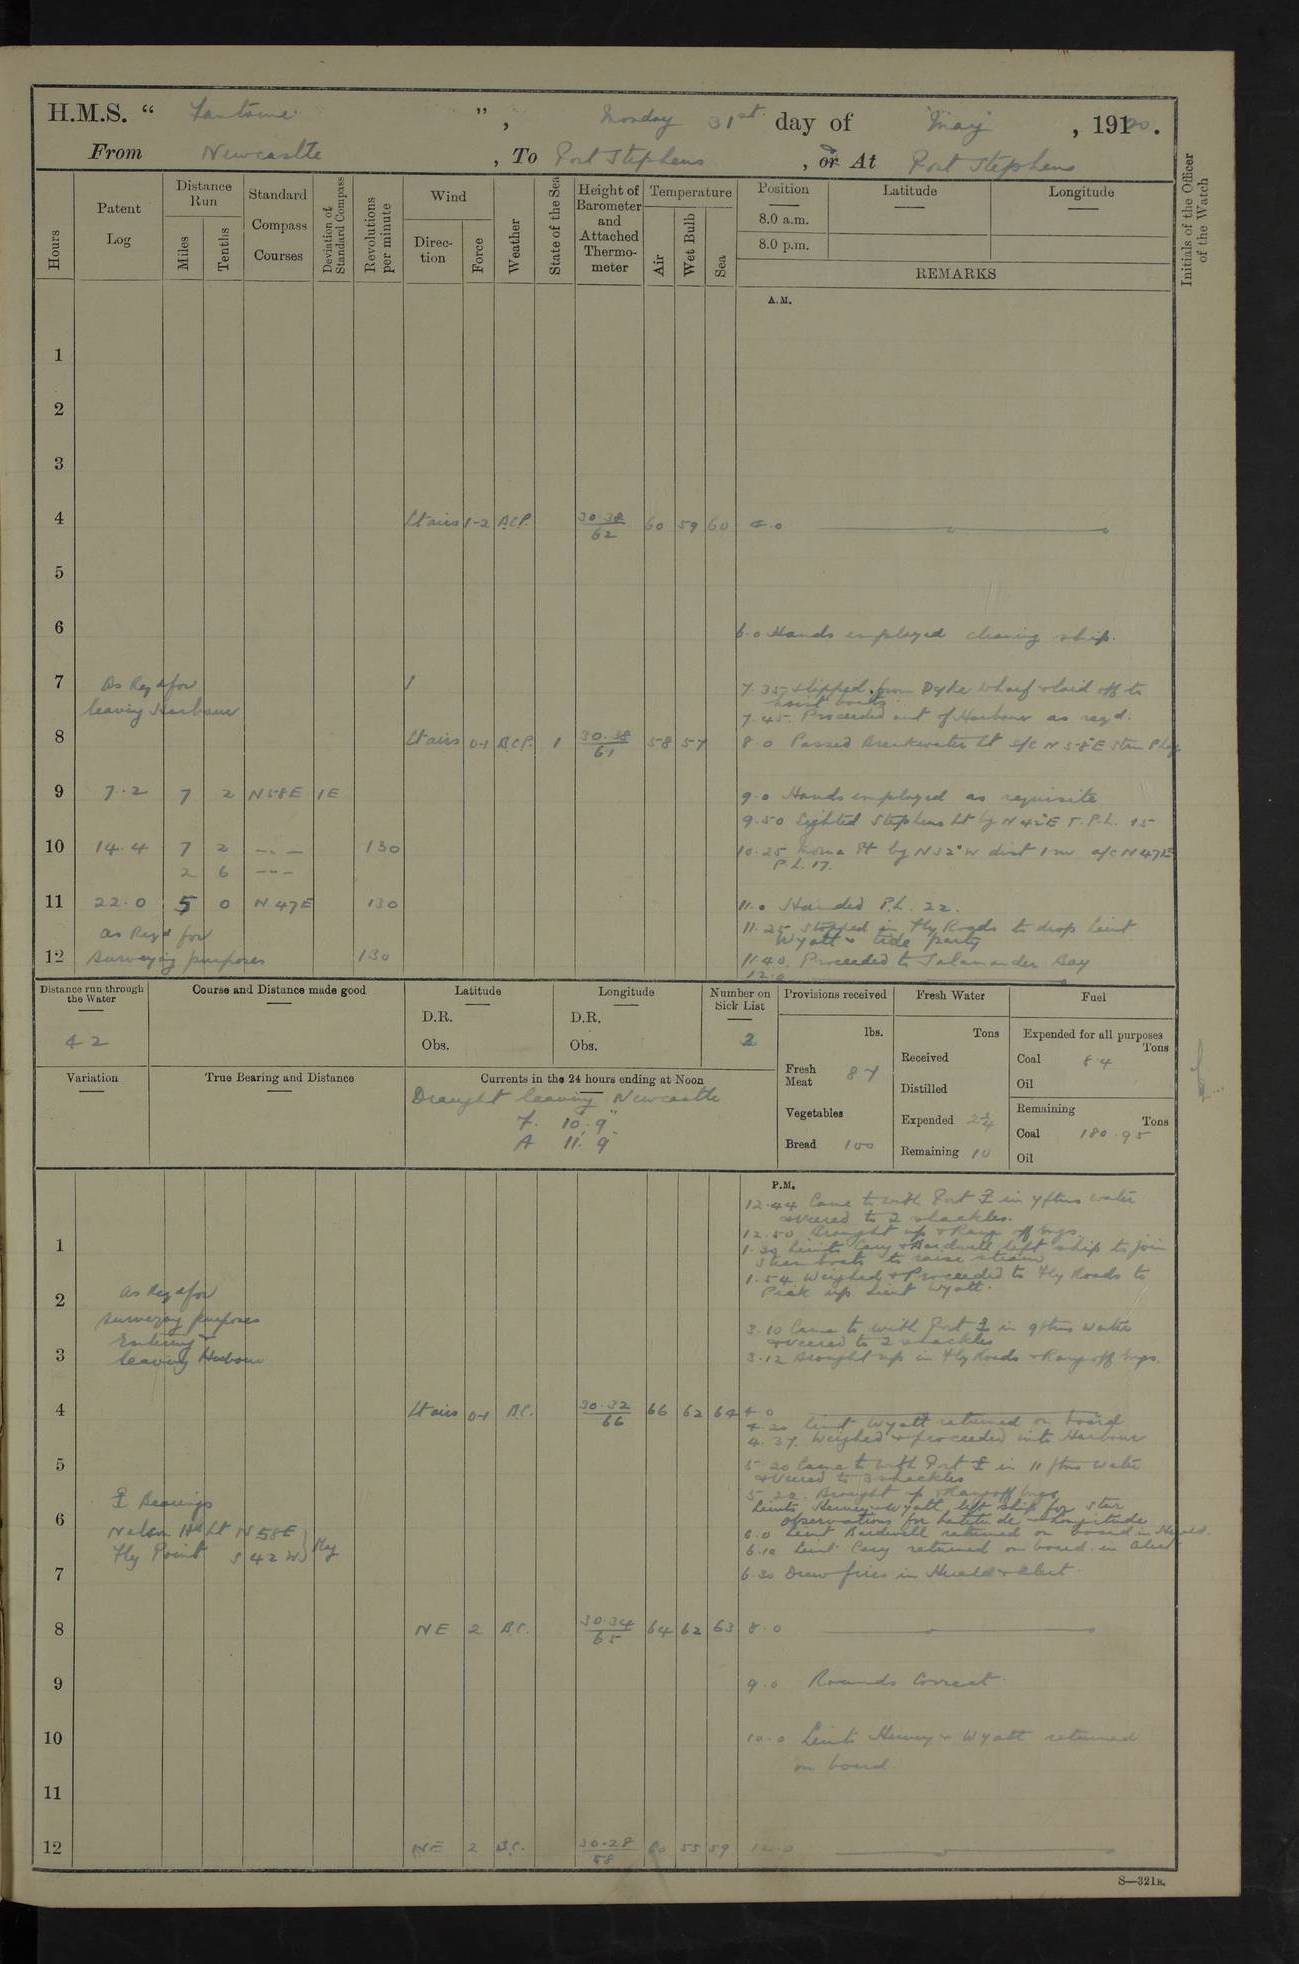 H.M.S. “ Fantome ” , Monday 31st day of May , 1920 .
From Newcastle , To Port Stephens , or At Port Stephens
Hours
Patent Log
Distance Run
Miles
Tenths
Standard Compass Courses
Deviation of Standard Compass
Revolutions per minute
Wind
Direc-tion
Force
Weather
State of the Sea
Height of Barometer and Attached Thermo-meter
Temperature
Air
Wet Bulb
Sea
Position
8.0 a.m.
8.0 p.m.
Latitude
Longitude
REMARKS
Initials of the Officer of the Watch
A.M.
1
2
3
4 Lt airs 1-2 B.C.P. 30.38/62 60 59 60 4.0
5
6 6.0 Hands employed cleaning ship.
7 As Reqd for 7.35 Slipped from Dyke Wharf & laid off to
leaving Harbour hoist boats
7.45 Proceeded out of Harbour as reqd.
8 Lt airs 0-1 B.C.P. 1 30.38/61 58 57 8.0 Passed Breakwater Lt s/c N58°E
9 7.2 7 2 N58E 1E 9.0 Hands employed as requisite
9.50 Sighted Stephens Lt by N42°E P.L. 15
10 14.4 7 2 -- — 130 10.25 Pt by N52°W dist 1 m a/c N47E
2 6 --- P.L. 17.
11 22.0 5 0 N47E 130 11.0 Handed P.L. 22.
as Reqd for 11.25 Stopped in Fly Roads to drop Lieut
Wyatt & tide party
12 surveying purposes 130 11.40. Proceeded to Salamander Bay
12.0
Distance run through the Water
42
Course and Distance made good
Latitude
D.R.
Obs.
Longitude
D.R.
Obs.
Number on Sick List
2
Provisions received
lbs.
Fresh Meat 87
Vegetables
Bread 100
Fresh Water
Tons
Received
Distilled
Expended 2¾
Remaining 10
Fuel
Expended for all purposes
Tons
Coal 8.4
Oil
Remaining
Tons
Coal 180.95
Oil
Variation
True Bearing and Distance
Currents in the 24 hours ending at Noon
Draught leaving Newcastle
F. 10' 9"
A 11' 9"
P.M.
12.44 Came to with Port ⚓ in 7 fms water
& veered to 2 shackles.
12.50 Brought up & Rang off engs.
1 1.30 Lieuts Cary & Bardwell left ship to join
Steamboats to raise steam
1.54 Weighed & Proceeded to Fly Roads to
Pick up Lieut Wyatt.
2 as Reqd for
surveying purposes
Entering &
3 leaving Harbour
3.10 Came to with Port ⚓ in 9 fms water
& veered to 2 shackles
3.12 Brought up in Fly Roads & Rang off engs.
4 Lt airs 0-1 B.C. 30.32/66 66 62 64 4.0
4.20 Lieut Wyatt returned on board
4.37. Weighed & proceeded into Harbour
5 5.20 Came to with Port ⚓ in 11 fms water
& veered to 3 shackles
5.22. Brought up & Rang off engs
Lieuts Harvey & Wyatt left ship for star
observations for Latitude & Longitude
⚓ Bearings
6 Nelson Hd Lt N58E
Fly Point S42W } Mag
6.0 Lieut Bardwell returned on board in Herald.
6.10 Lieut Cary returned on board in Alert
7 6.30 Drew fires in Herald & Alert
8 NE 2 B.C. 30.34/65 64 62 63 8.0
9 9.0 Rounds Correct.
10 10.0 Lieuts Harvey & Wyatt returned
on board.
11
12 NE 2 B.C. 30.28/58 60 55 59 12.0
S—321B.